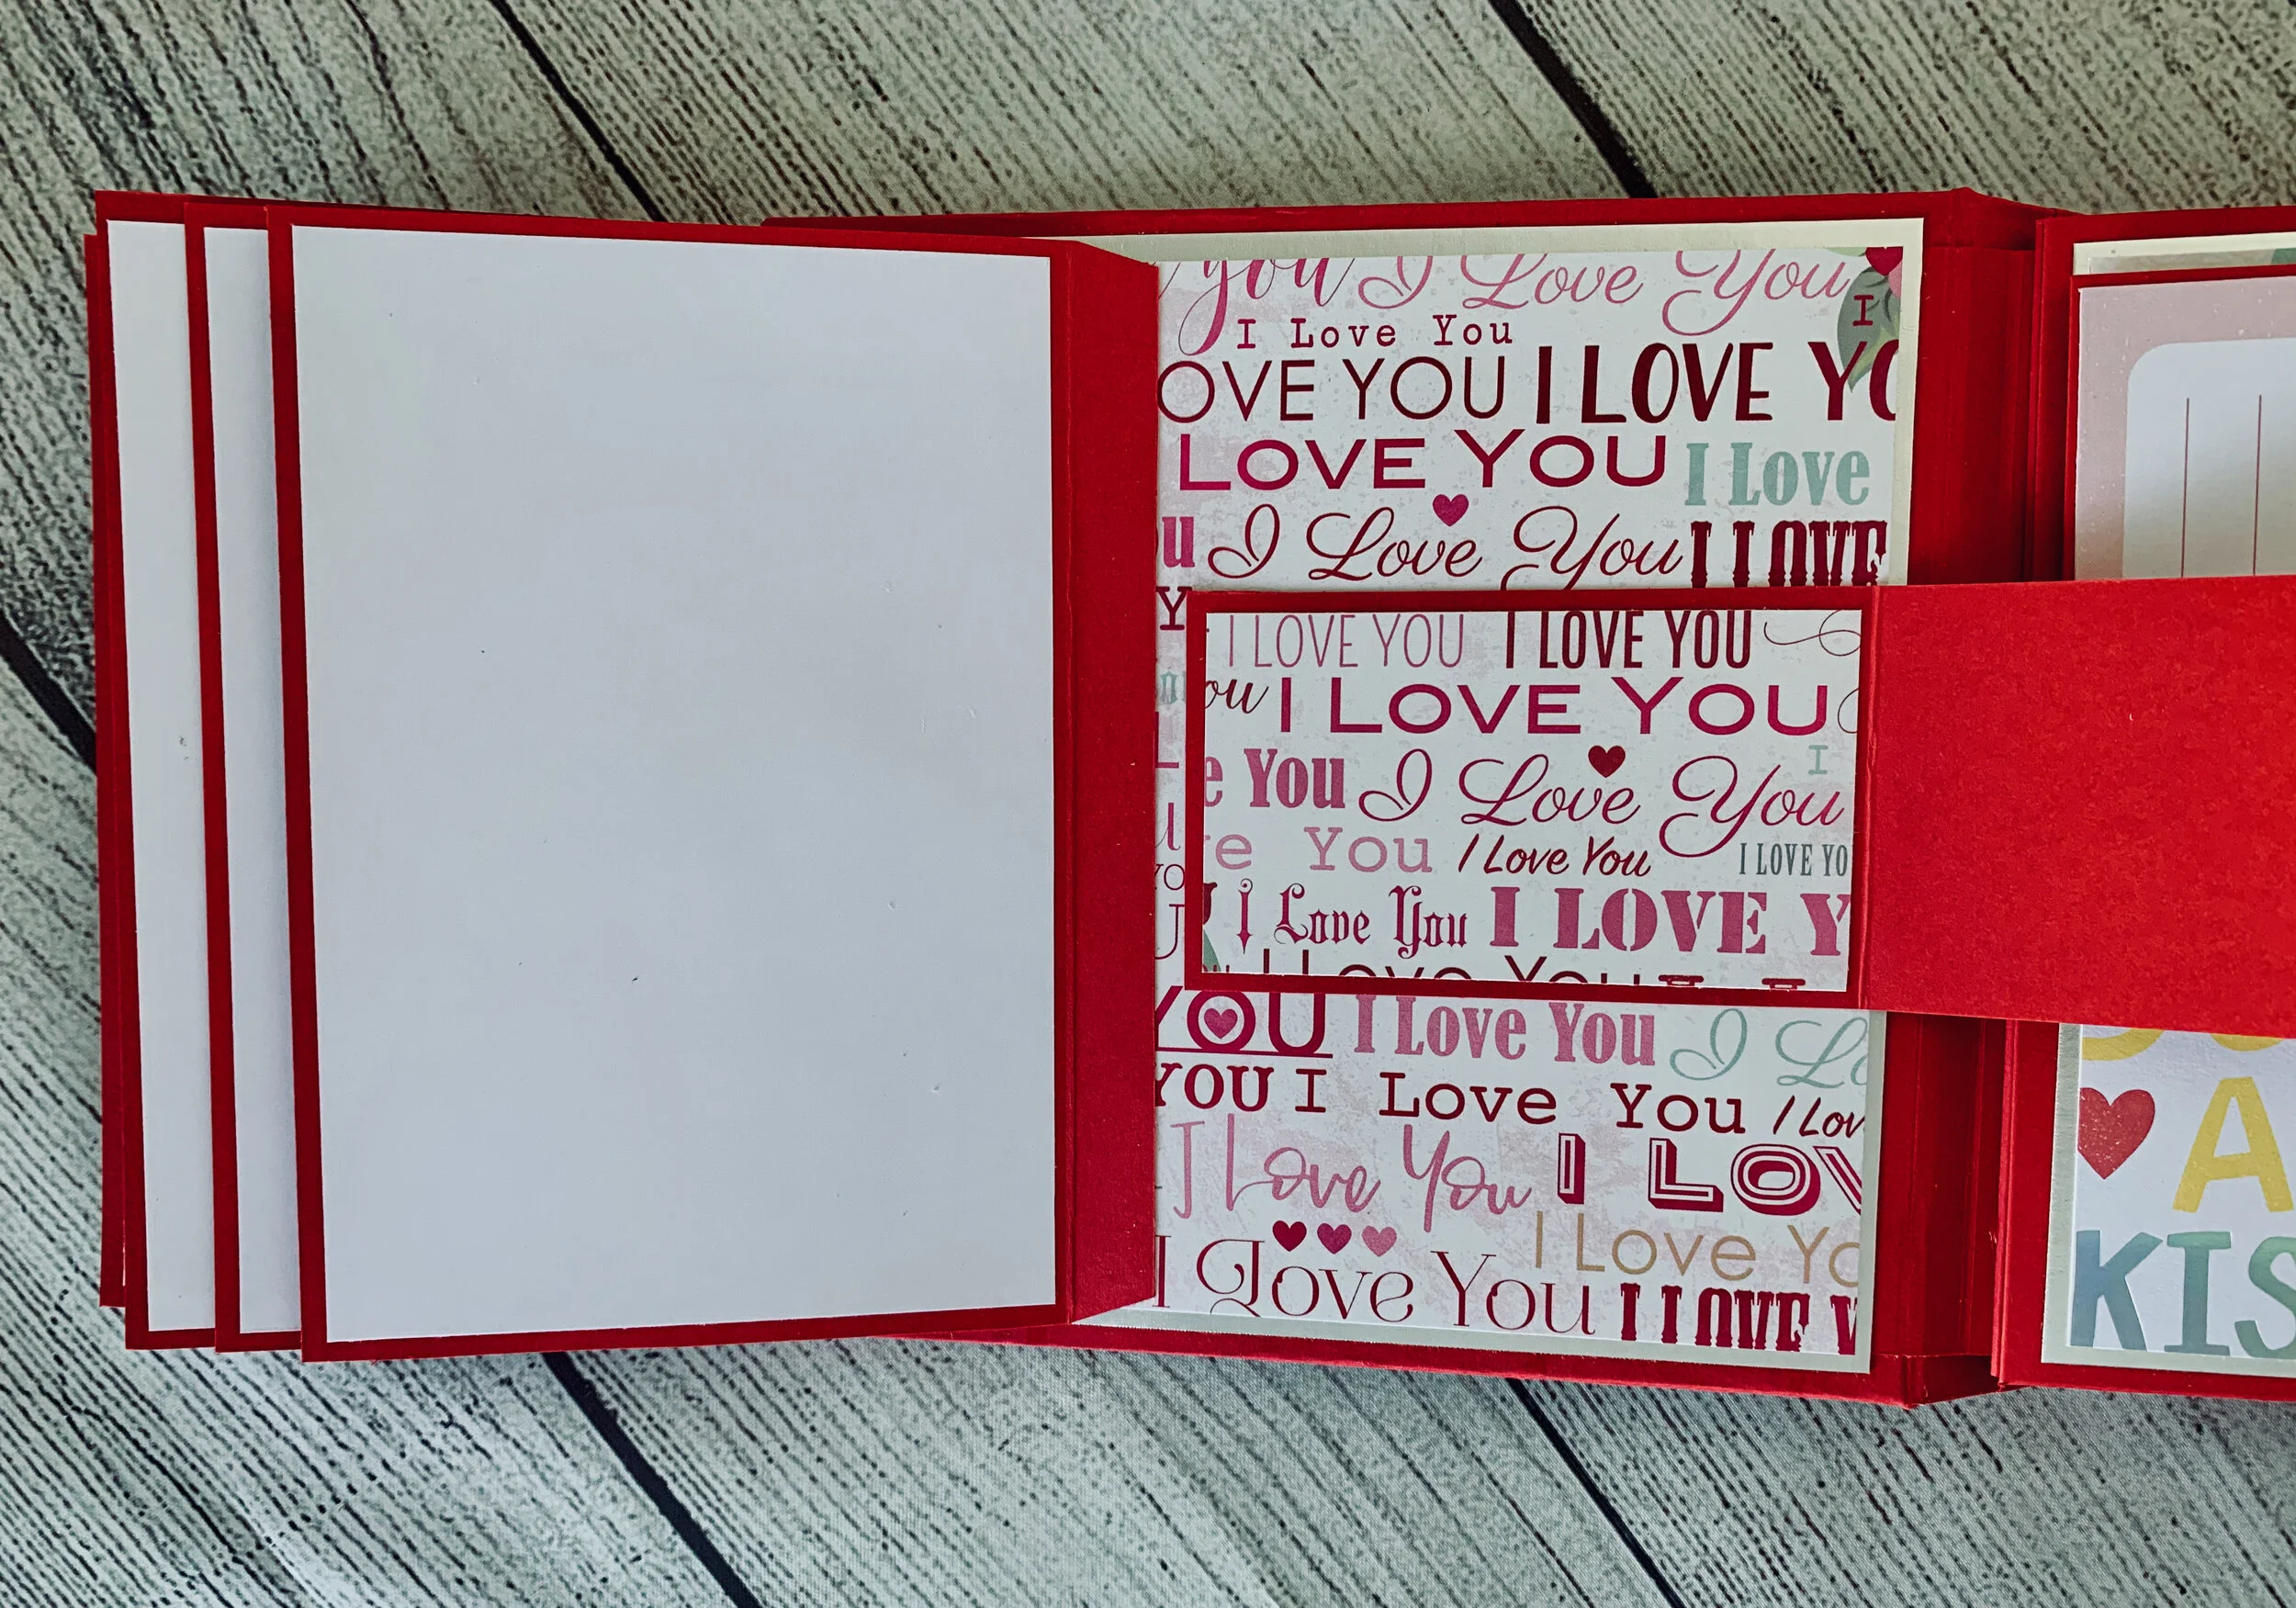 you I Love You
I Love You I
OVE YOU I LOVE YO
LOVE YOU I Love
u I Love You I LOVE
Y
I LOVE YOU I LOVE YOU
ou I LOVE YOU
e You I Love You I
e You I Love You I LOVE YO
I Love You I LOVE Y
I Love You
YOU I Love You I Lo
YOU I Love You I Lov
I Love You I LOV
I Love Yo
I Love You I LOVE Y
A
KIS